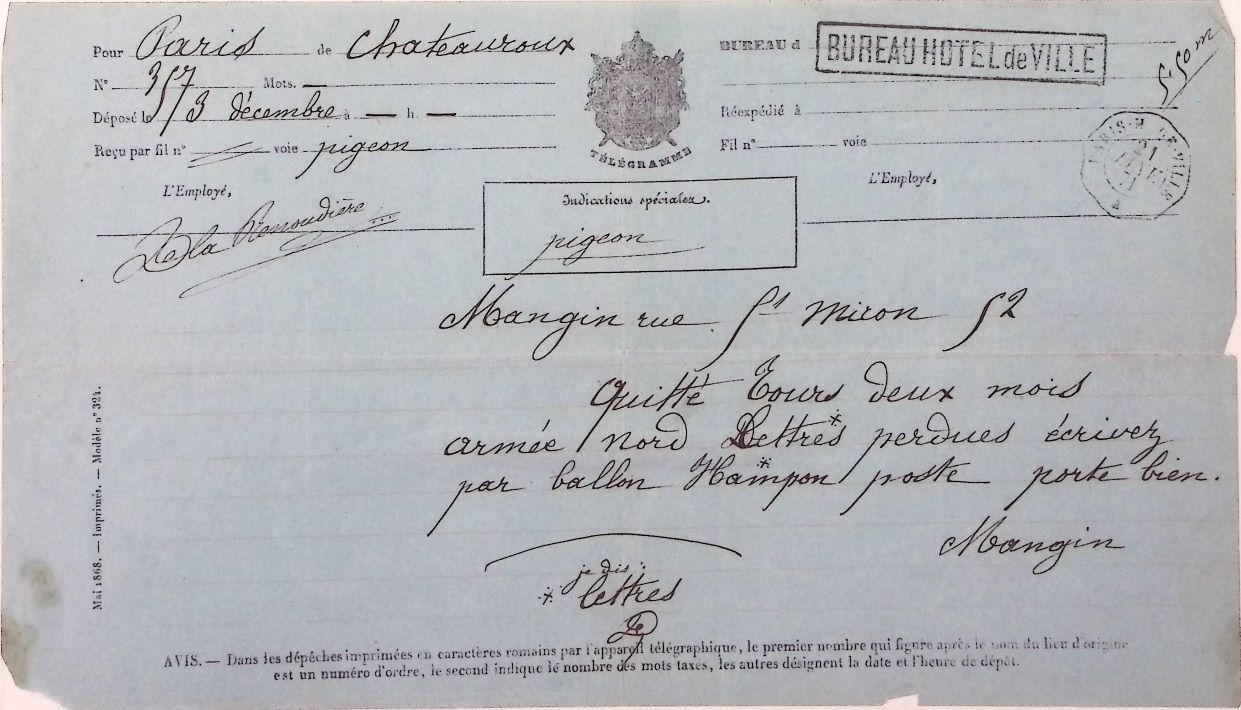 Pour Paris de Chateauroux
N° 357 Mots. —
Déposé le 3 décembre à — h. —
Reçu par fil n° voie pigeon
L'Employé,
TÉLÉGRAMME
Indications spéciales.
pigeon
BUREAU d BUREAU HOTEL de VILLE
5.50 m
Réexpédié à
Fil n° voie
L'Employé,
PARIS-H. DE-VILLE
21
Mangin rue St Miron 52
quitté Tours deux mois
armée nord Lettres* perdues écrivez
par ballon Hampon* poste porte bien.
Mangin
je dis :
* lettres
Mai 1868. — Imprimés. — Modèle n° 324.
AVIS. — Dans les dépêches imprimées en caractères romains par l'appareil télégraphique, le premier nombre qui figure après le nom du lieu d'origine
est un numéro d'ordre, le second indique le nombre des mots taxés, les autres désignent la date et l'heure de dépôt.